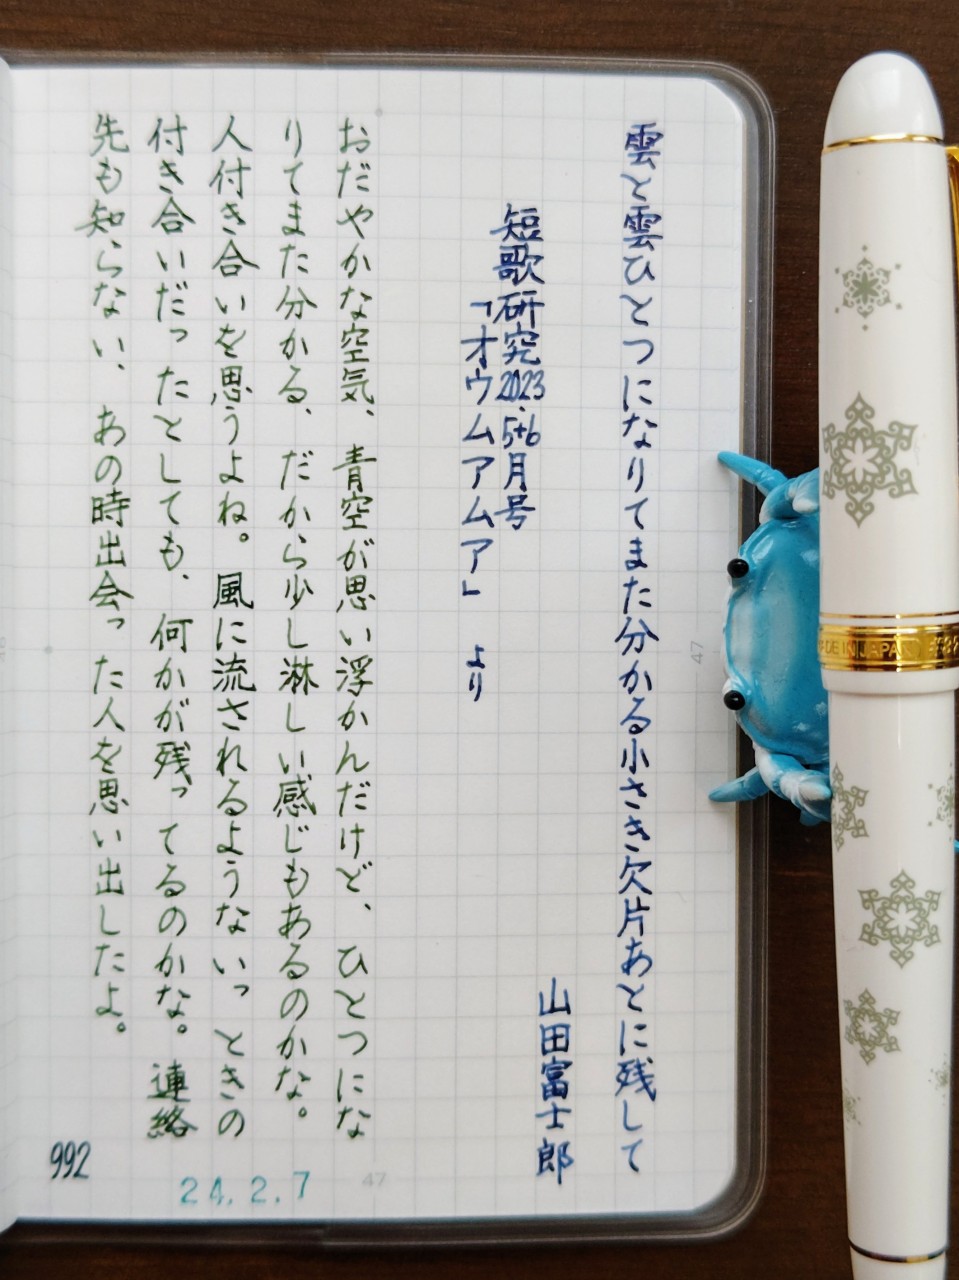 雲と雲ひとつになりてまた分かる小さき欠片あとに残して
山田富士郎
短歌研究2023.5+6月号
「オウムアムア」 より
おだやかな空気、青空が思い浮かんだけど、ひとつにな
りてまた分かる、だから少し淋しい感じもあるのかな。
人付き合いを思うよね。風に流されるようないっときの
付き合いだったとしても、何かが残ってるのかな。連絡
先も知らない、あの時出会った人を思い出したよ。
992
24.2.7
47
47
MADE IN JAPAN